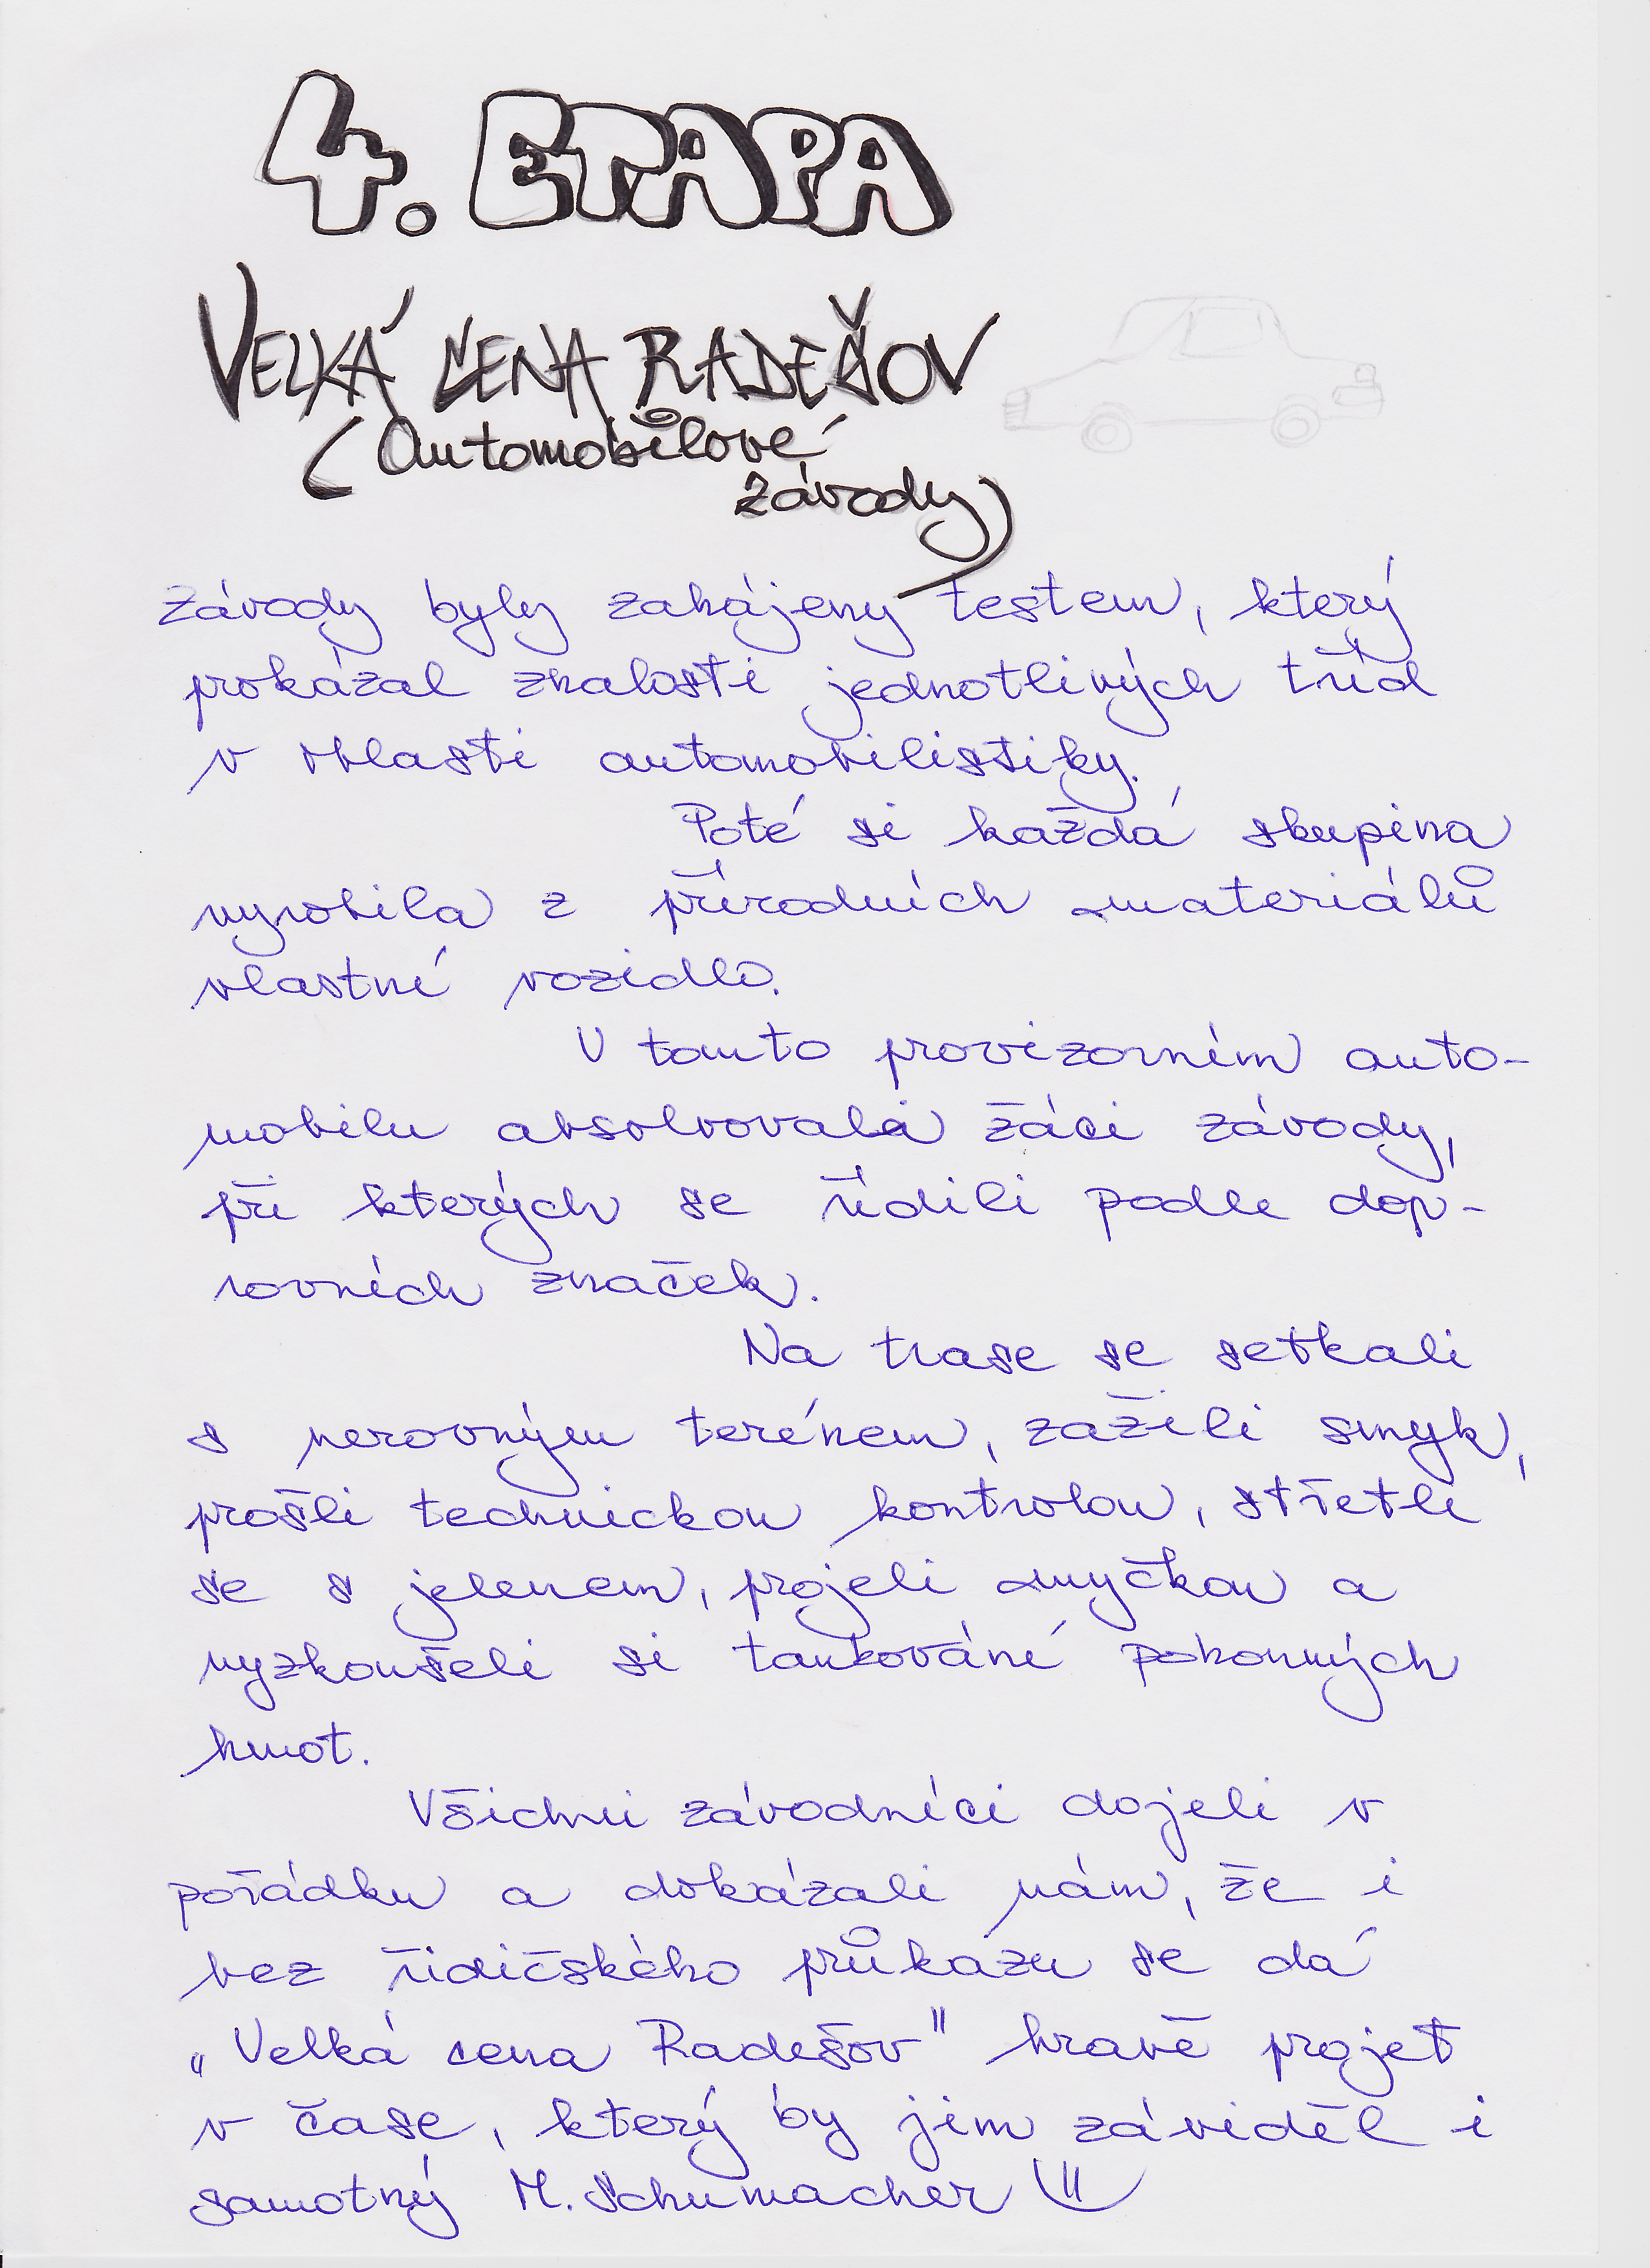 4. ETAPA
VELKÁ CENA RADEŠOV
(Automobilové
závody)
Závody byly zahájeny testem, který
prokázal znalosti jednotlivých tříd
v oblasti automobilistiky.
Poté si každá skupina
vyrobila z přírodních materiálů
vlastní vozidlo.
V tomto provizorním auto-
mobilu absolvovali žáci závody,
při kterých se řídili podle dop-
rovních značek.
Na trase se setkali
s nerovným terénem, zažili smyk,
prošli technickou kontrolou, střetli
se s jelenem, projeli myčkou a
vyzkoušeli si tankování pohonných
hmot.
Všichni závodníci dojeli v
pořádku a dokázali nám, že i
bez řidičského průkazu se dá
„Velká cena Radešov" hravě projet
v čase, který by jim záviděl i
samotný M. Schumacher